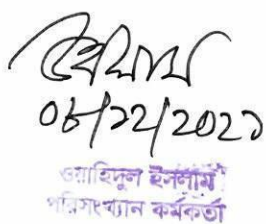 ০৮/১২/২০২১
ওয়াহিদুল ইসলাম
পরিসংখ্যান কর্মকর্তা